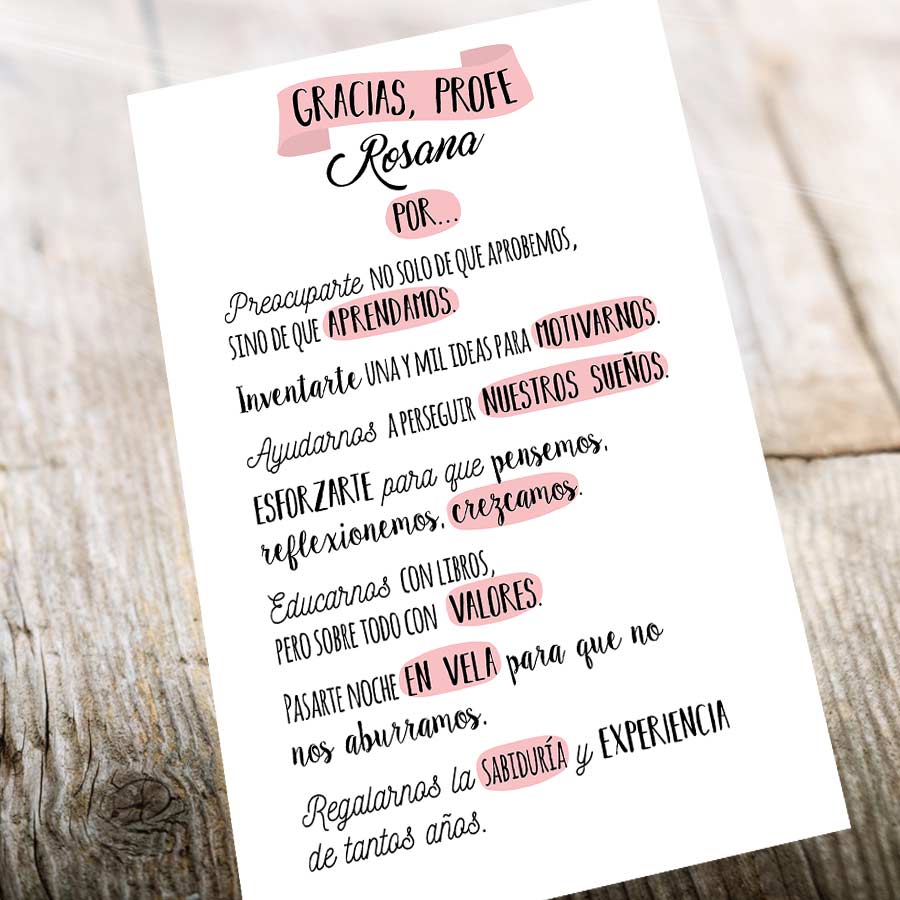 GRACIAS, PROFE
Rosana
POR...
Preocuparte NO SOLO DE QUE APROBEMOS,
SINO DE QUE APRENDAMOS.
Inventarte UNA Y MIL IDEAS PARA MOTIVARNOS.
Ayudarnos A PERSEGUIR NUESTROS SUEÑOS.
ESFORZARTE para que pensemos,
reflexionemos, crezcamos.
Educarnos CON LIBROS,
PERO SOBRE TODO CON VALORES.
PASARTE NOCHE EN VELA para que no
nos aburramos.
Regalarnos la SABIDURÍA y EXPERIENCIA
de tantos años.